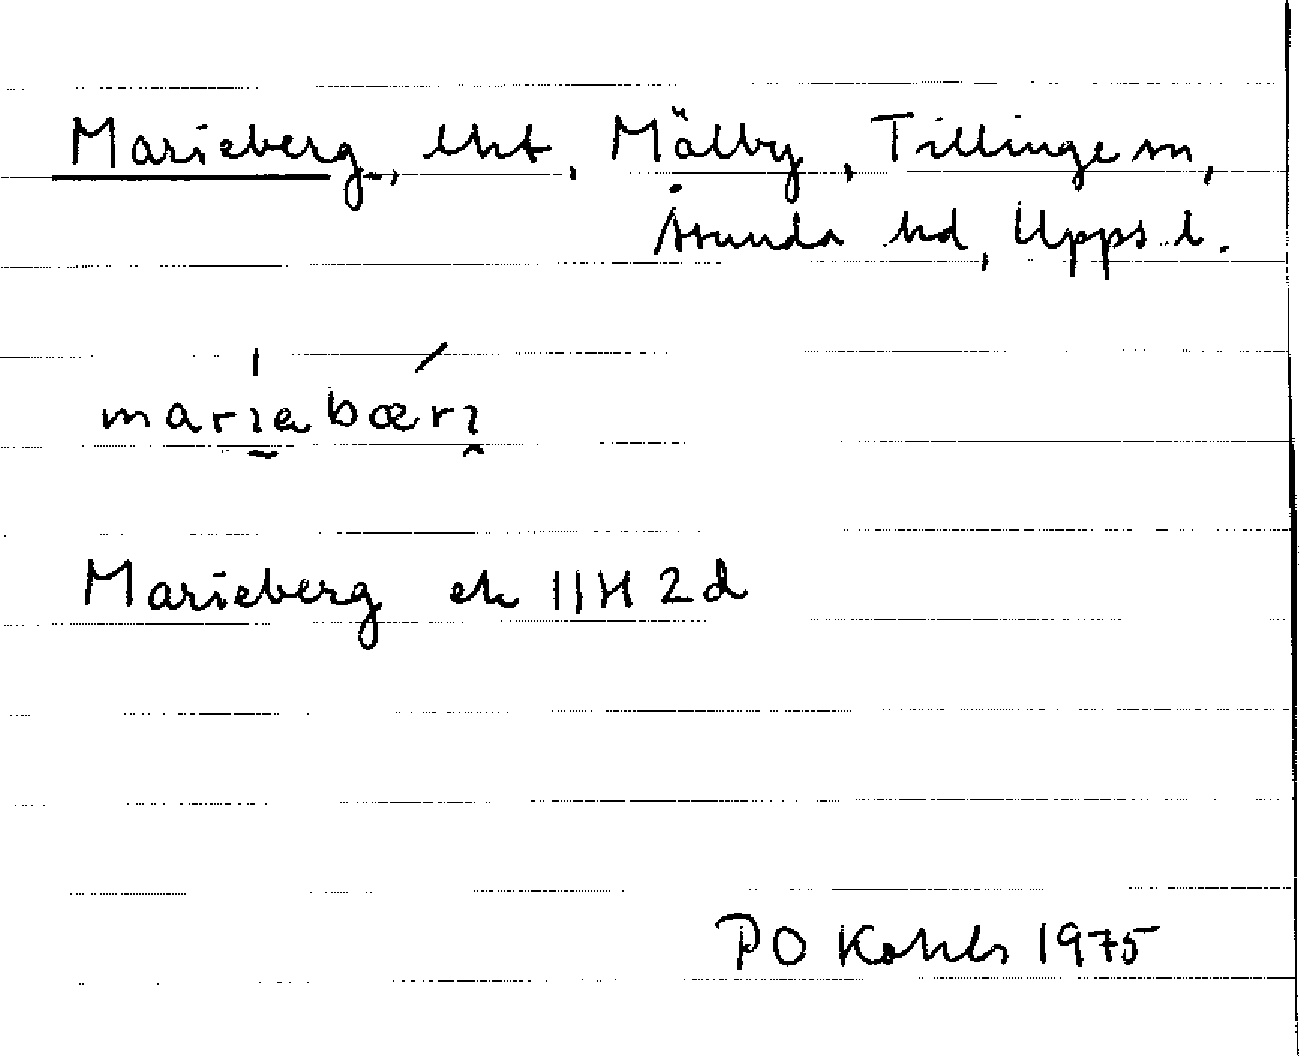 Marieberg, lht, Mälby, Tillinge sn,
Åsunda hd, Upps.l.
marıabærı
Marieberg ek 11H2d
PO Kohls 1975